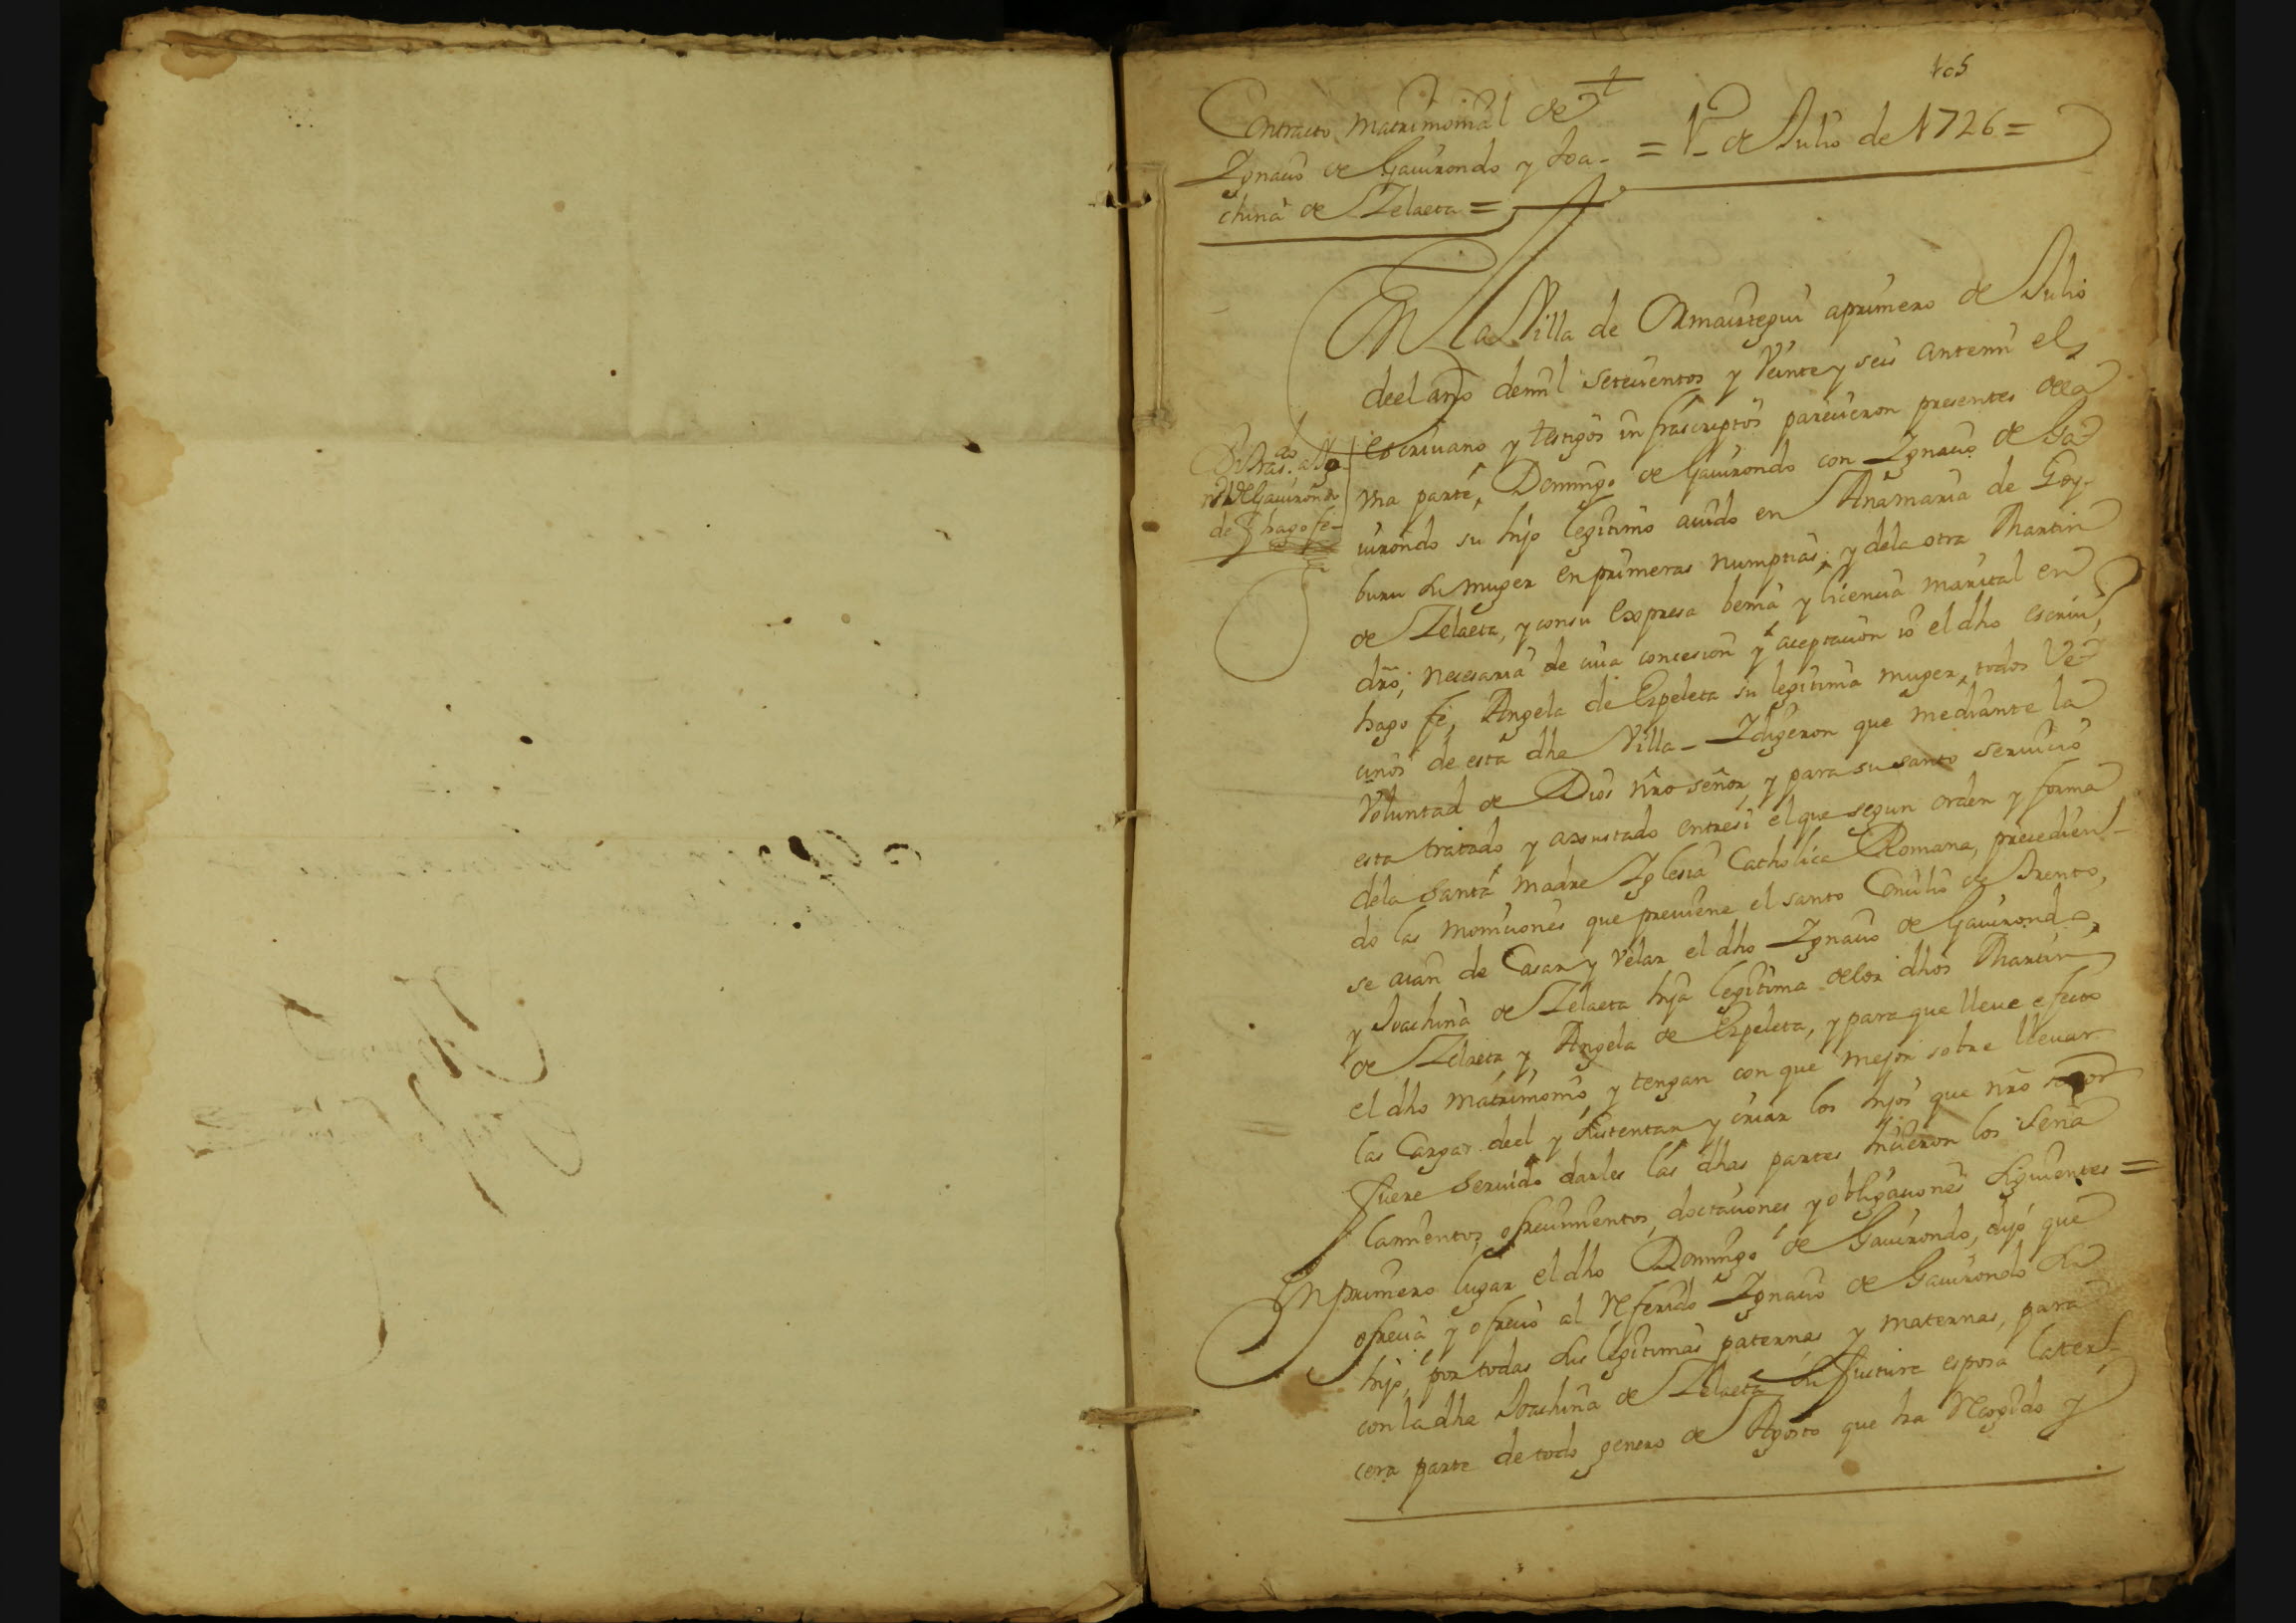 105
Contracto Matrimonial de
Ygnacio de Gavirondo y Joa-
china de Zelaeta =
= 1º de Julio de 1726 =
En la Villa de Ormaiztegui a primero de Julio
de el año de mil setecientos y Veinte y seis ante mi el
escrivano y testigos infrascriptos parecieron presentes de la
vna parte, Domingo de Gavirondo con Ygnacio de Ga-
virondo su hijo legitimo avido en Ana maria de Goy-
buru su muger en primeras numptias; y de la otra Martin
de Zelaeta, y con su expresa venia y licencia marital en
dro; necesaria de cuia concesion y aceptacion io el dho escriv,
hago fe, Angela de Ezpeleta su legitima muger, todos Ve-
cinos de esta dha Villa - Y digeron que mediante la
Voluntad de Dios nro señor, y para su santo servicio
esta tratado y axustado entre si el que segun orden y forma
de la Santa Madre Yglesia Catholica Romana, precedien-
do las moniciones que previene el santo Concilio de Trento,
se aian de Casar y Velar el dho Ygnacio de Gavirondo,
y Joachina de Zelaeta hija legitima de los dhos Martin
de Zelaeta, y Angela de Ezpeleta, y para que lleve efecto
el dho matrimonio, y tengan con que mejor sobre llevar
las Cargas de el y sustentar y criar los hijos que nro señor
fuere servido darles las dhas partes hicieron los Seña
lamientos, ofrecimientos, doctaciones y obligaciones siguientes =
En primero lugar el dho Domingo de Gavirondo, dijo que
ofrecia y ofrecio al Referido Ygnacio de Gavirondo su
hijo, por todas sus legitimas paternas y maternas, para
con la dha Joachina de Zelaeta su future esposa la ter-
cera parte de todo genero de Agosto que ha Recogido y
de Gavirondo
de q hago fe-